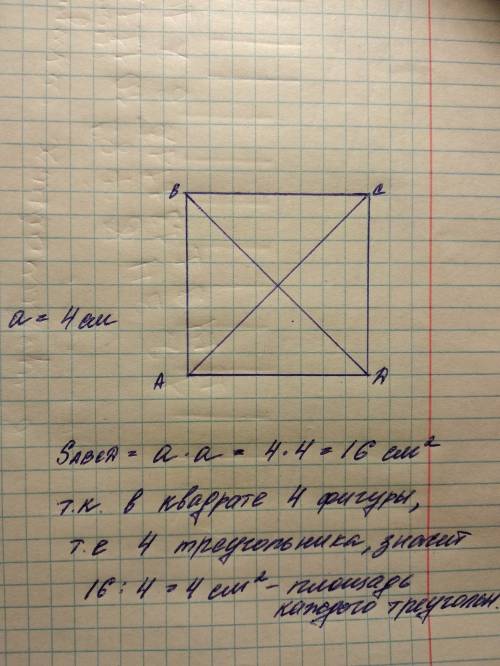 B C
a = 4 см
A D
SABCD = a · a = 4 · 4 = 16 см²
т.к. в квадрате 4 фигуры,
т.е 4 треугольника, значит
16 : 4 = 4 см² - площадь
каждого треугольн.